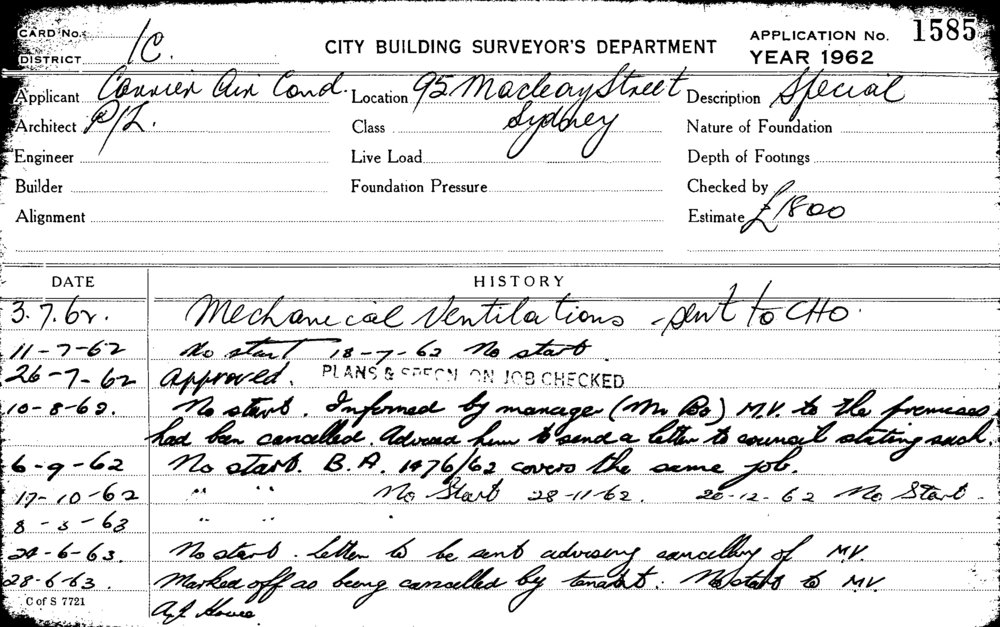 CARD No.
DISTRICT 1C.
CITY BUILDING SURVEYOR'S DEPARTMENT
APPLICATION No. 1585
YEAR 1962
Applicant Carrier Air Cond. Location 95 Macleay Street Description Special
Architect P/L. Class Sydney Nature of Foundation
Engineer Live Load Depth of Footings
Builder Foundation Pressure Checked by
Alignment Estimate £1800
DATE HISTORY
3.7.62. Mechanical Ventilations - sent to CHO.
11-7-62 No start 18-7-62 No start.
26-7-62 Approved. PLANS & SPECN ON JOB CHECKED
10-8-62. No start. Informed by manager (Mr Bo) M.V. to the premises
had been cancelled. Advised him to send a letter to council stating such.
6-9-62 No start. B.A. 1476/62 covers the same job.
17-10-62 " " No Start 28-11-62. 20-12-62 No Start -
8-3-63 " " .
24-6-63. No start. Letter to be sent advising cancelling of M.V.
28-6-63. Marked off as being cancelled by tenant. No start to M.V.
C of S 7721